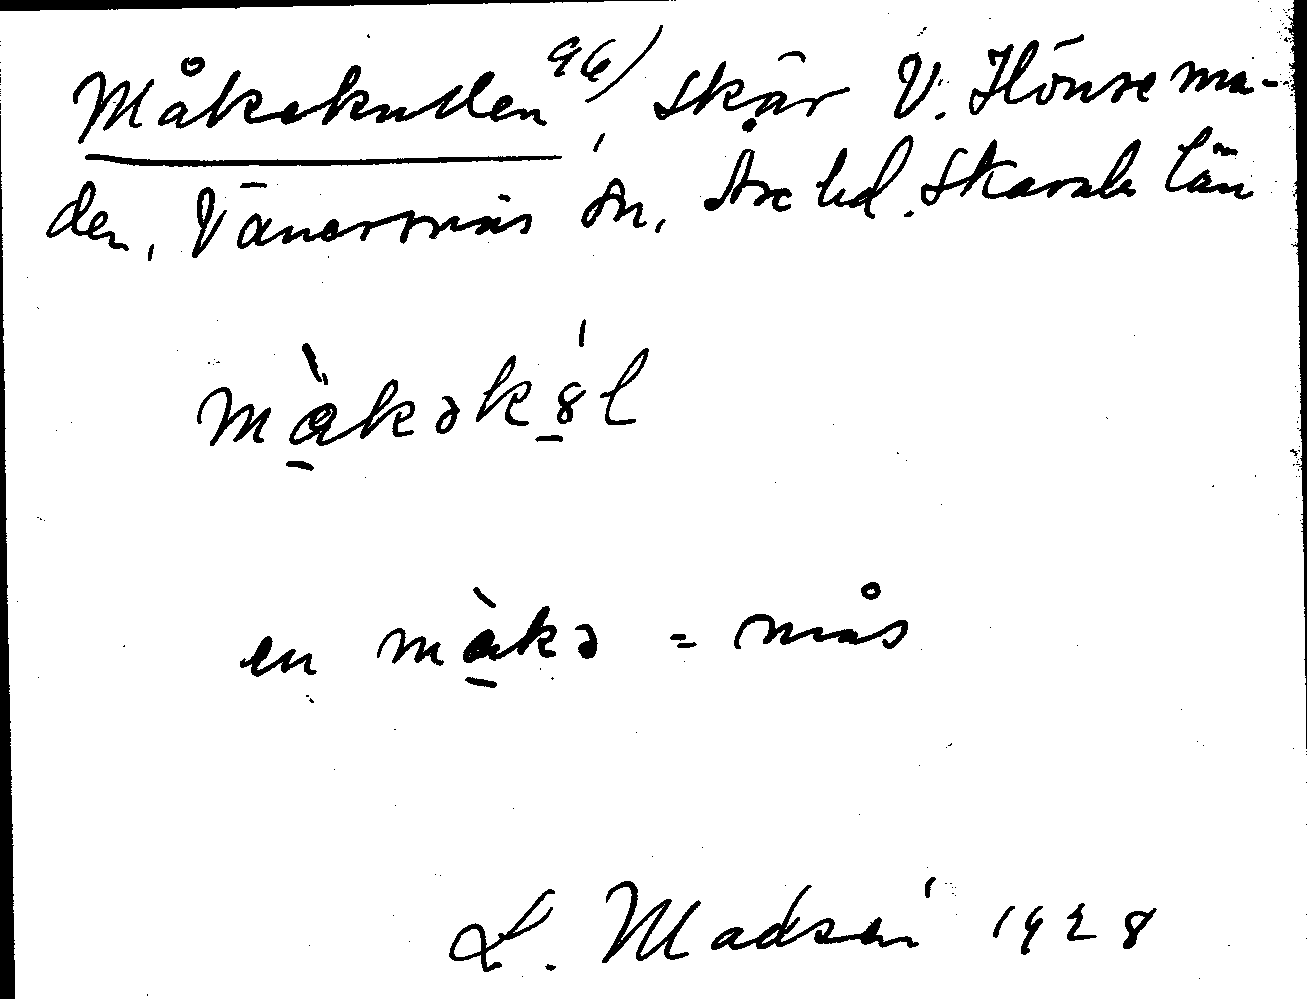 Måkekullen 96), skär V. Hönsema-
den, Vänersnäs sn, Åse hd. Skarab. län
må̀kəkál
en màkə = mås
L. Madsen 1928